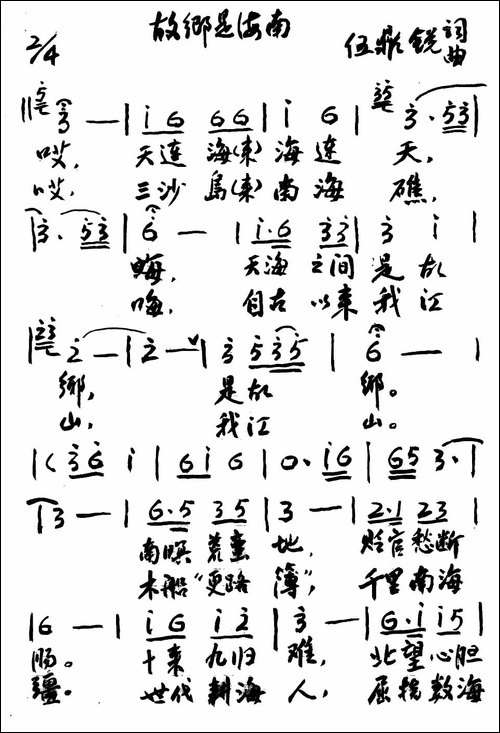 故鄉是海南
2/4
伍鼎銳 詞曲
3 — | i 6 6 6 | i 6 | 3 · 5 3 |
哎， 天連 海（來）海連 天，
哎， 三沙 島（來）南海 礁，
| 3 · 5 3 | 6 — | i · 6 3 3 | 3 i |
天海 之間 是故
自古 以來 我江
2 — | 2 — | 3 5 3 5 | 6 — |
鄉， 是故 鄉。
山， 我江 山。
| ( 3 6 i | 6 i 6 | 0 · i 6 | 6 5 3 · |
| 3 — | 6 · 5 3 5 | 3 — | 2 · 1 2 3 |
南暝 荒蠻 地， 官愁斷
木船 “更路 簿”， 千里南海
| 6 — | i 6 i 2 | 3 — | 6 · i i 5 |
腸。 十來九归 難， 北望心胆
疆。 世代 耕海 人， 屈指数海